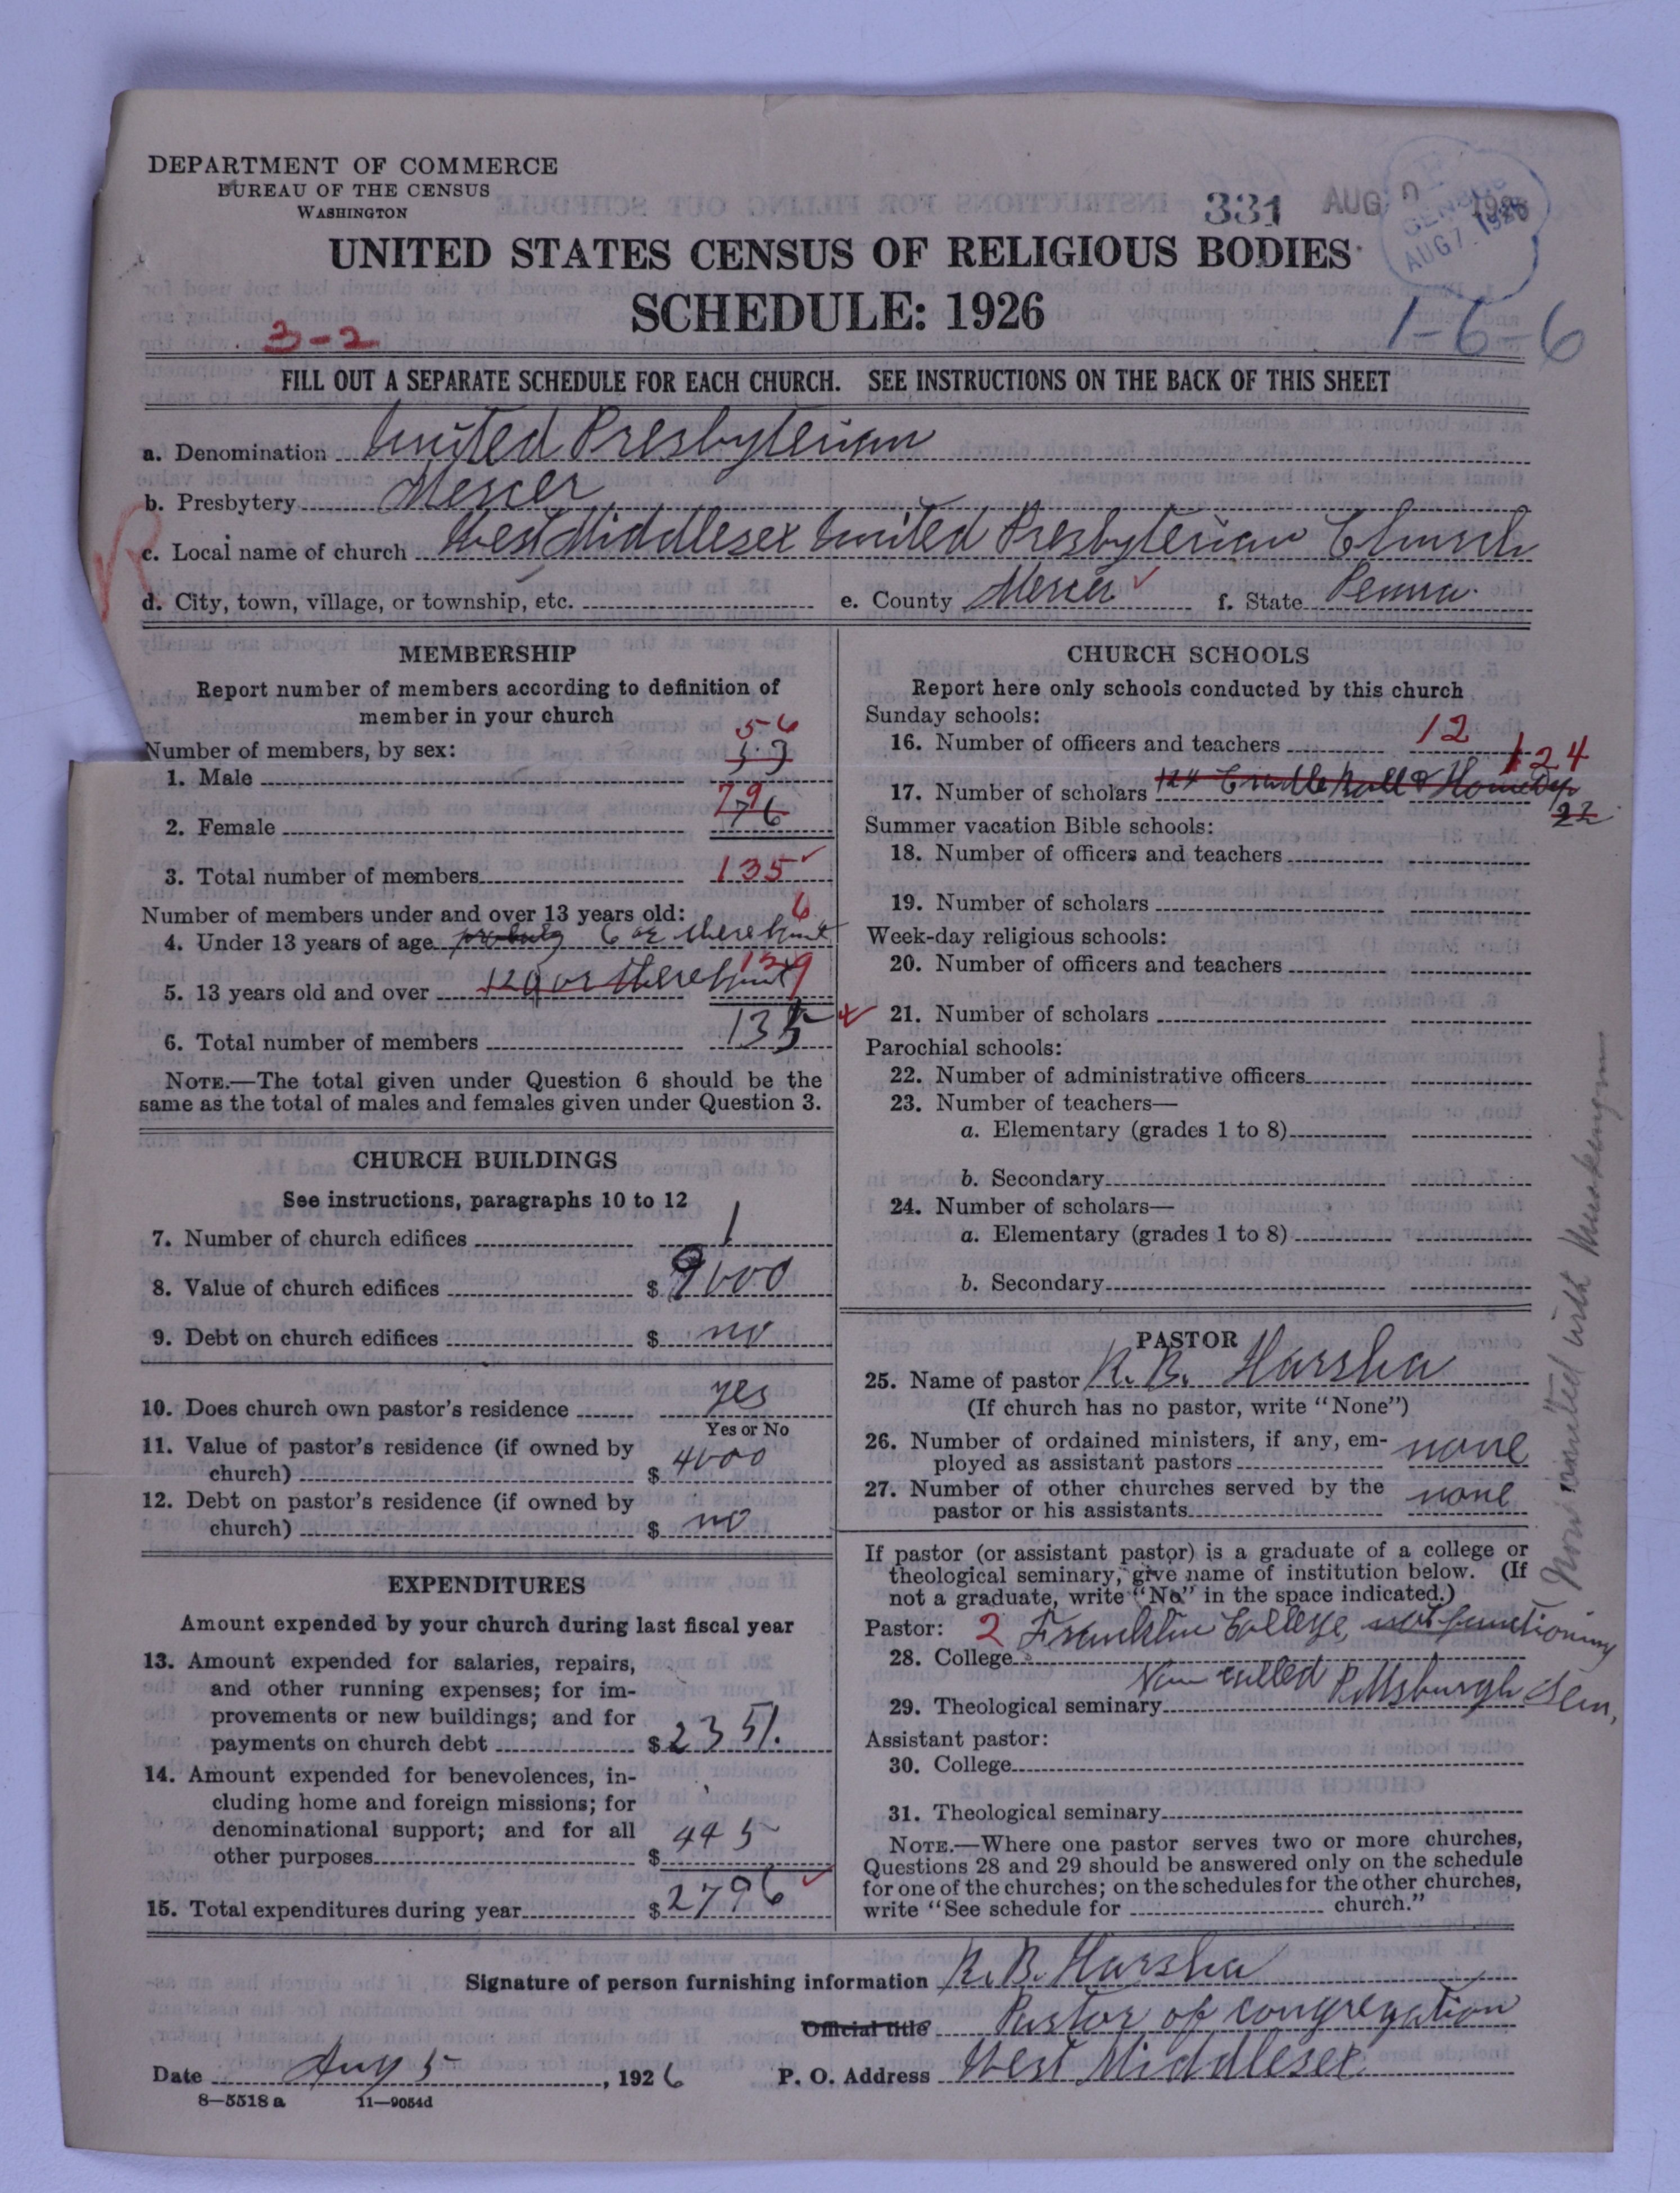 DEPARTMENT OF COMMERCE
BUREAU OF THE CENSUS
WASHINGTON
331 AUG 1926
CENSUS
AUG 7 1926
UNITED STATES CENSUS OF RELIGIOUS BODIES
SCHEDULE: 1926
3-2
1-6-6
FILL OUT A SEPARATE SCHEDULE FOR EACH CHURCH. SEE INSTRUCTIONS ON THE BACK OF THIS SHEET
a. Denomination United Presbyterian
b. Presbytery Mercer
c. Local name of church West Middlesex United Presbyterian Church
d. City, town, village, or township, etc. e. County Mercer f. State Penna.
R
MEMBERSHIP
Report number of members according to definition of
member in your church
Number of members, by sex:
56
1. Male
79
2. Female 76
3. Total number of members 135
Number of members under and over 13 years old:
6
4. Under 13 years of age probably 6 or thereabout
5. 13 years old and over 129 or thereabout 129
6. Total number of members 135
NOTE.—The total given under Question 6 should be the
same as the total of males and females given under Question 3.
CHURCH BUILDINGS
See instructions, paragraphs 10 to 12
7. Number of church edifices 1
8. Value of church edifices $ 9000
9. Debt on church edifices $ no
10. Does church own pastor's residence yes
Yes or No
11. Value of pastor's residence (if owned by
church) $ 4000
12. Debt on pastor's residence (if owned by
church) $ no
EXPENDITURES
Amount expended by your church during last fiscal year
13. Amount expended for salaries, repairs,
and other running expenses; for im-
provements or new buildings; and for
payments on church debt $ 2351.
14. Amount expended for benevolences, in-
cluding home and foreign missions; for
denominational support; and for all
other purposes $ 445
15. Total expenditures during year $ 2796
CHURCH SCHOOLS
Report here only schools conducted by this church
Sunday schools:
16. Number of officers and teachers 12
124
17. Number of scholars 124 Cradle Roll & Home Dep
22
Summer vacation Bible schools:
18. Number of officers and teachers
19. Number of scholars
Week-day religious schools:
20. Number of officers and teachers
21. Number of scholars
Parochial schools:
22. Number of administrative officers
23. Number of teachers—
a. Elementary (grades 1 to 8)
b. Secondary
24. Number of scholars—
a. Elementary (grades 1 to 8)
b. Secondary
PASTOR
25. Name of pastor R. B. Harsha
(If church has no pastor, write "None")
26. Number of ordained ministers, if any, em-
ployed as assistant pastors none
27. Number of other churches served by the
pastor or his assistants none
If pastor (or assistant pastor) is a graduate of a college or
theological seminary, give name of institution below. (If
not a graduate, write "No" in the space indicated.)
Pastor: 2 Franklin College, not functioning
28. College
Now united with Muskingum
29. Theological seminary Now called Pittsburgh Sem.
Assistant pastor:
30. College
31. Theological seminary
NOTE.—Where one pastor serves two or more churches,
Questions 28 and 29 should be answered only on the schedule
for one of the churches; on the schedules for the other churches,
write "See schedule for church."
Signature of person furnishing information R. B. Harsha
Official title Pastor of congregation
Date Aug 5, 1926 P. O. Address West Middlesex
8—5518 a 11—9054d